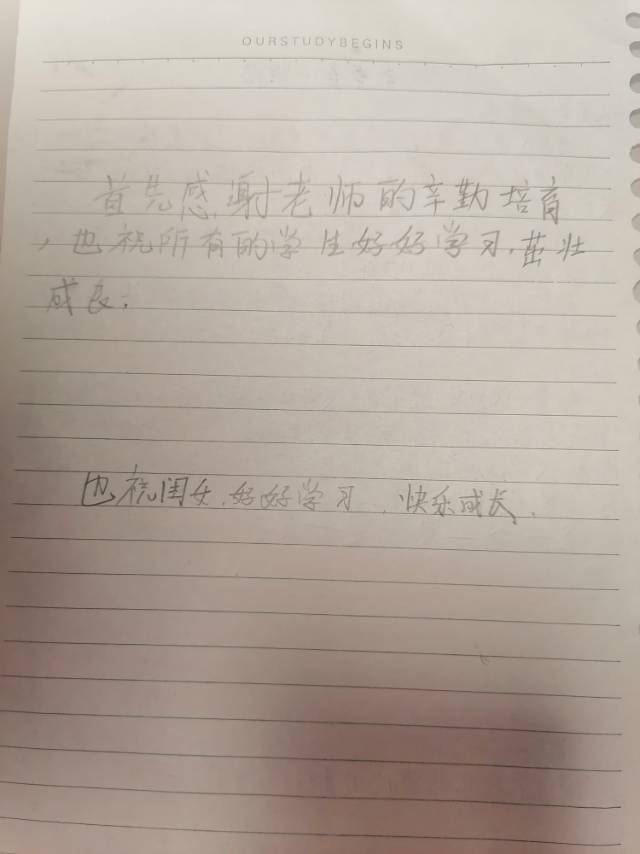 OURSTUDYBEGINS
首先感谢老师的辛勤培育
，也祝所有的学生好好学习.茁壮
成长.
也祝闺女.好好学习.快乐成长.